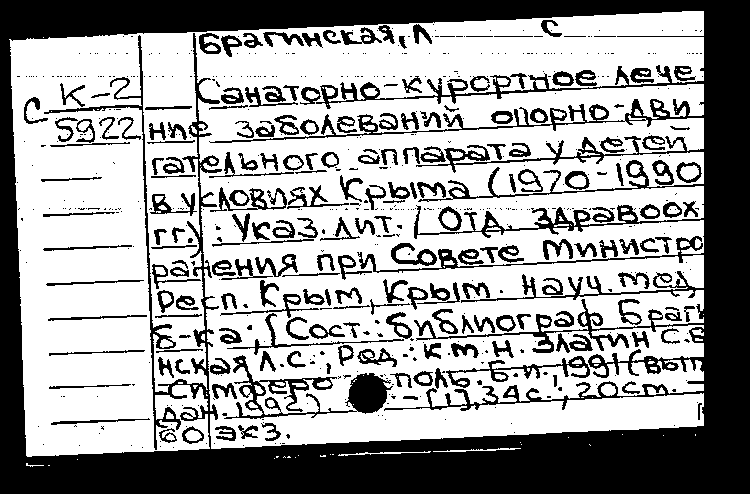 Брагинская, Л С
К-2 Санаторно-курортное лече-
С 5922 ние заболеваний опорно-дви-
гательного аппарата у детей
в условиях Крыма (1970-1990
гг.) : Указ. лит. / Отд. здравоох-
ранения при Совете Министро
Респ. Крым, Крым. науч. мед.
б-ка; [Сост.: библиограф Браги
нская Л.С.; Ред.: к.м.н. Златин С.Б
-Симферополь. Б.и., 1991 (вып.
дан. 1992). - [1], 34 с.; 20 cm. -
60 экз.